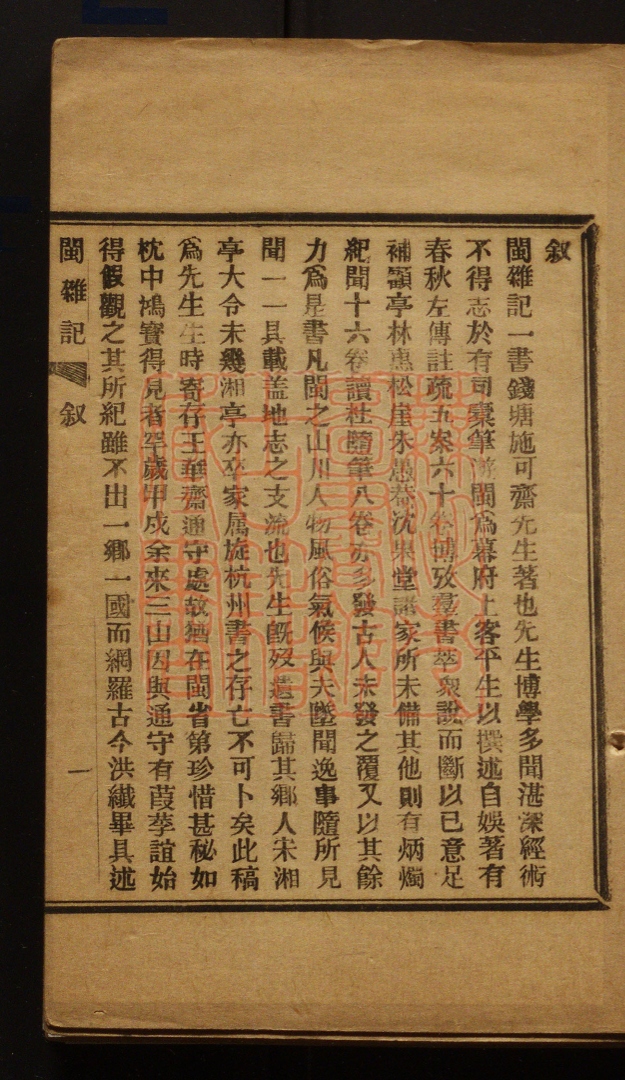 叙
閩雜記一書錢塘施可齋先生著也先生博學多聞湛深經術
不得志於有司橐筆遊閩爲幕府上客平生以撰述自娛著有
春秋左傳註疏五案六十卷博攷羣書萃衆說而斷以已意足
補顧亭林惠松崖朱愚菴沈果堂諸家所未備其他則有炳燭
紀聞十六卷讀杜隨筆八卷亦多發古人未發之覆又以其餘
力爲是書凡閩之山川人物風俗氣候與夫墜聞逸事隨所見
聞一一具載盖地志之支流也先生旣歿遺書歸其鄉人朱湘
亭大令未幾湘亭亦卒家属旋杭州書之存亡不可卜矣此稿
爲先生生時寄存王華齋通守處故猶在閩省第珍惜甚秘如
枕中鴻寶得見者罕歲甲戍余來三山因與通守有葭莩誼始
得假觀之其所紀雖不出一鄉一國而網羅古今洪纖畢具述
閩雜記 叙 一